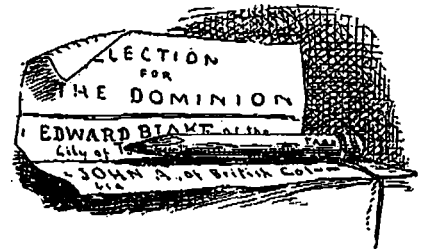 LECTION
FOR
THE DOMINION
EDWARD BLAKE of the
City of T
JOHN A., of British Colum
bia